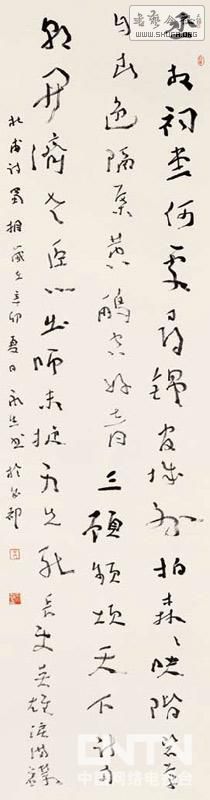 丞相祠堂何处寻锦官城外柏森々映阶碧草
自春色隔叶黄鹂空好音三顾频烦天下计两
朝开济老臣心出师未捷身先死长使英雄泪满襟
杜甫诗蜀相岁在辛卯夏日
WWW.SHUFA.ORG
CNTN
中国网络电视台